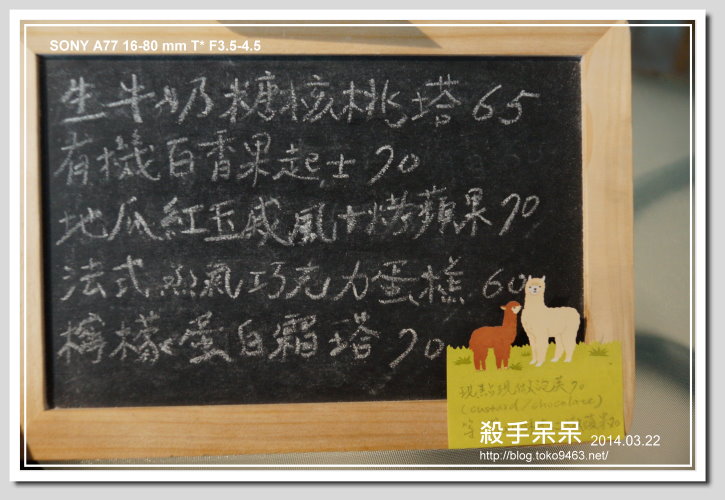 SONY A77 16-80 mm T* F3.5-4.5
生牛奶糖核桃塔 65
有機百香果起士 70
地瓜紅玉戚風+烤蘋果 70
法式蒸氣巧克力蛋糕 60
檸檬蛋白霜塔 70
現點現做泡芙 70
(custard/chocolate)
殺手呆呆 2014.03.22
http://blog.toko9463.net/